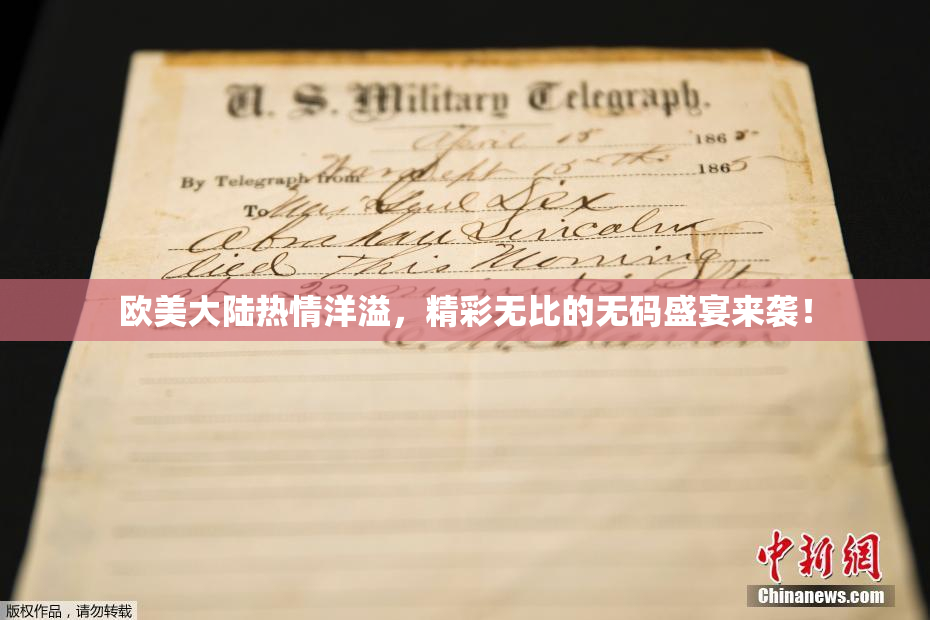 U. S. Military Telegraph.
April 15 1865
By Telegraph from War Dept 15th 1865
To Maj Genl Dix
Abraham Lincoln
died This Morning
at 22 minutes after
欧美大陆热情洋溢，精彩无比的无码盛宴来袭！
中新网
Chinanews.com
版权作品，请勿转载